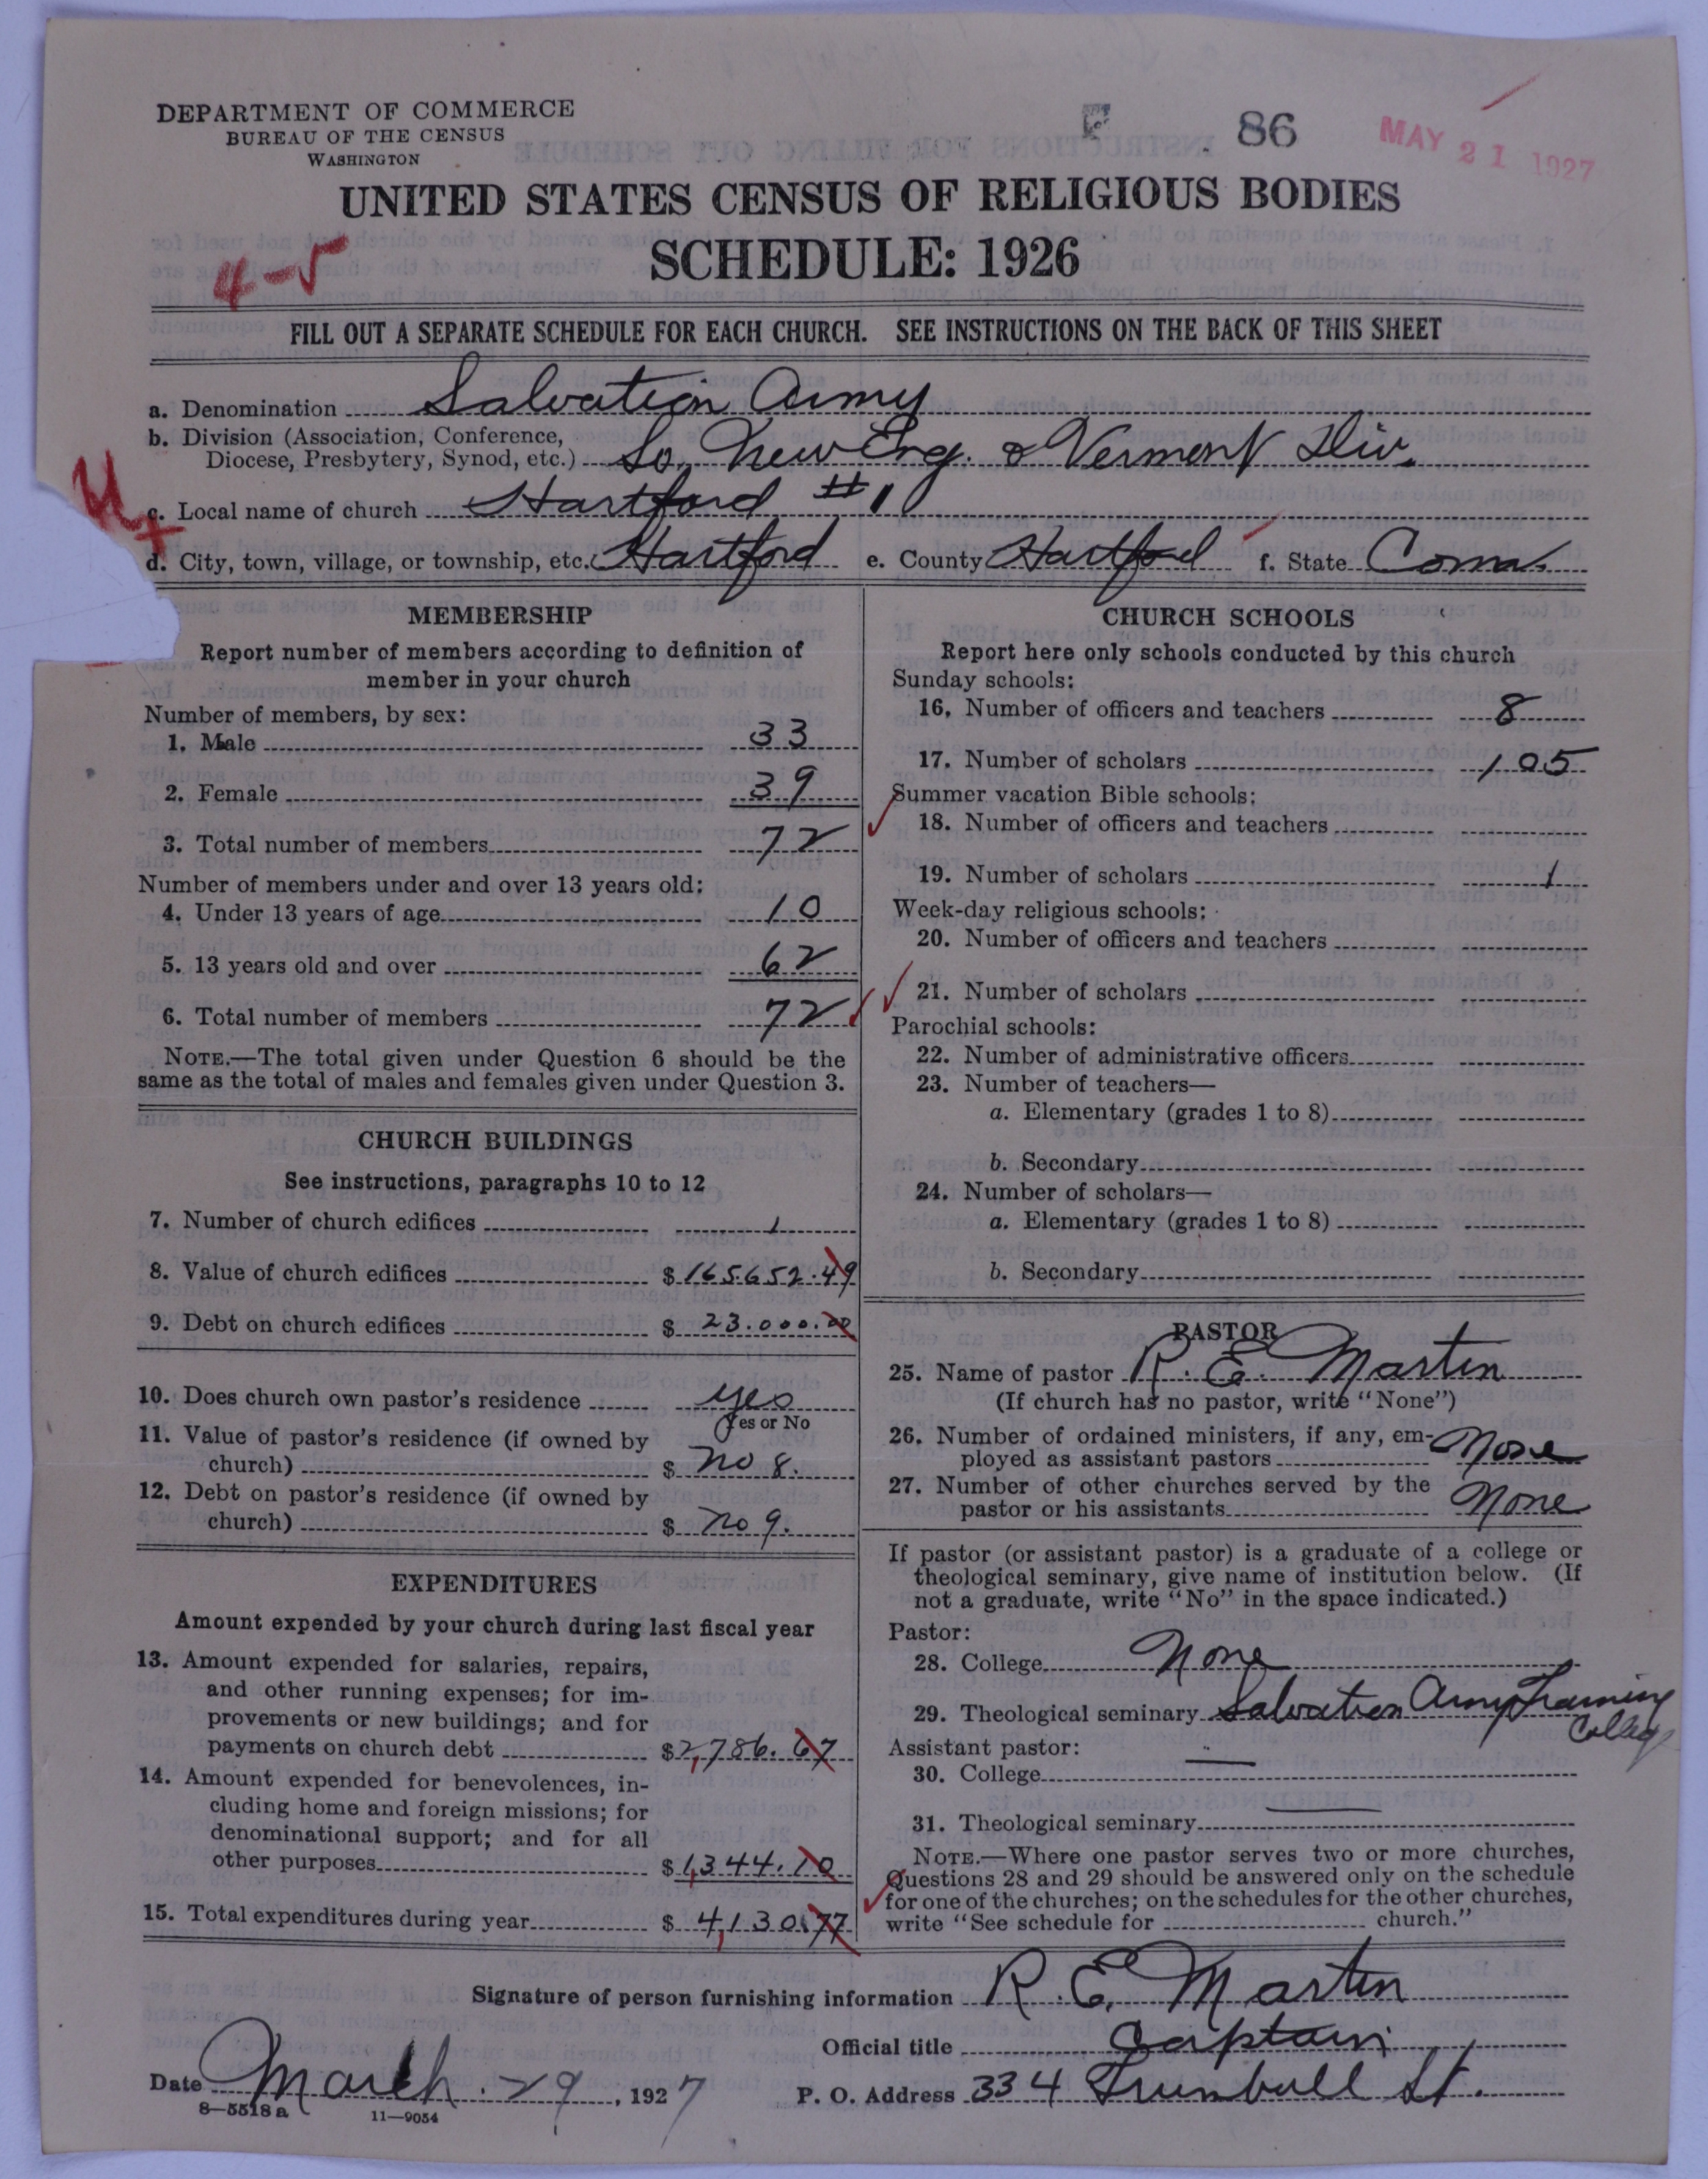 DEPARTMENT OF COMMERCE
BUREAU OF THE CENSUS
WASHINGTON
86
MAY 21 1927
UNITED STATES CENSUS OF RELIGIOUS BODIES
SCHEDULE: 1926
4-5
FILL OUT A SEPARATE SCHEDULE FOR EACH CHURCH. SEE INSTRUCTIONS ON THE BACK OF THIS SHEET
a. Denomination Salvation Army
b. Division (Association, Conference,
Diocese, Presbytery, Synod, etc.) So. New Eng. & Vermont Div.
c. Local name of church Hartford #1
d. City, town, village, or township, etc. Hartford e. County Hartford f. State Conn.
MEMBERSHIP
Report number of members according to definition of
member in your church
Number of members, by sex:
1. Male 33
2. Female 39
3. Total number of members 72
Number of members under and over 13 years old:
4. Under 13 years of age 10
5. 13 years old and over 62
6. Total number of members 72
NOTE.—The total given under Question 6 should be the
same as the total of males and females given under Question 3.
CHURCH BUILDINGS
See instructions, paragraphs 10 to 12
7. Number of church edifices 1
8. Value of church edifices $ 165.652.49
9. Debt on church edifices $ 23.000.00
10. Does church own pastor's residence yes
Yes or No
11. Value of pastor's residence (if owned by
church) $ no 8.
12. Debt on pastor's residence (if owned by
church) $ no 9.
EXPENDITURES
Amount expended by your church during last fiscal year
13. Amount expended for salaries, repairs,
and other running expenses; for im-
provements or new buildings; and for
payments on church debt $2,786.67
14. Amount expended for benevolences, in-
cluding home and foreign missions; for
denominational support; and for all
other purposes $1,344.10
15. Total expenditures during year $ 4,130.77
CHURCH SCHOOLS
Report here only schools conducted by this church
Sunday schools:
16. Number of officers and teachers 8
17. Number of scholars 105
Summer vacation Bible schools:
18. Number of officers and teachers
19. Number of scholars 1
Week-day religious schools:
20. Number of officers and teachers
21. Number of scholars
Parochial schools:
22. Number of administrative officers
23. Number of teachers—
a. Elementary (grades 1 to 8)
b. Secondary
24. Number of scholars—
a. Elementary (grades 1 to 8)
b. Secondary
PASTOR
25. Name of pastor R. E. Martin
(If church has no pastor, write "None")
26. Number of ordained ministers, if any, em-
ployed as assistant pastors None
27. Number of other churches served by the
pastor or his assistants None
If pastor (or assistant pastor) is a graduate of a college or
theological seminary, give name of institution below. (If
not a graduate, write "No" in the space indicated.)
Pastor:
28. College None
29. Theological seminary Salvation Army Training
College
Assistant pastor:
30. College —
31. Theological seminary —
NOTE.—Where one pastor serves two or more churches,
Questions 28 and 29 should be answered only on the schedule
for one of the churches; on the schedules for the other churches,
write "See schedule for church."
Signature of person furnishing information R. E. Martin
Official title Captain
Date March 29, 1927 P. O. Address 334 Trumbull St.
8—5518a 11—9054